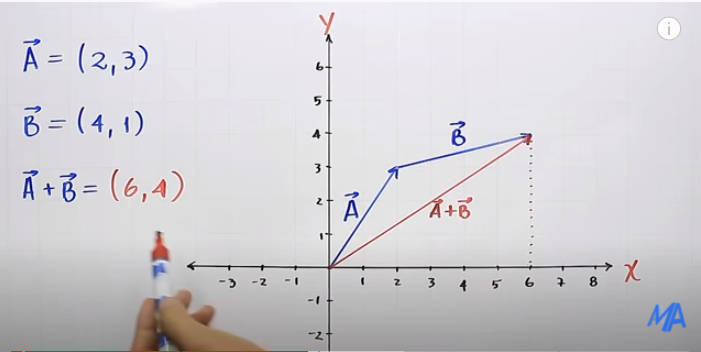 A⃗ = (2,3)
B⃗ = (4,1)
A⃗ + B⃗ = (6,4)
y
6
5
4
3
2
1
-1
-2
-3 -2 -1 1 2 3 4 5 6 7 8
x
A⃗
B⃗
A⃗+B⃗
MA
i